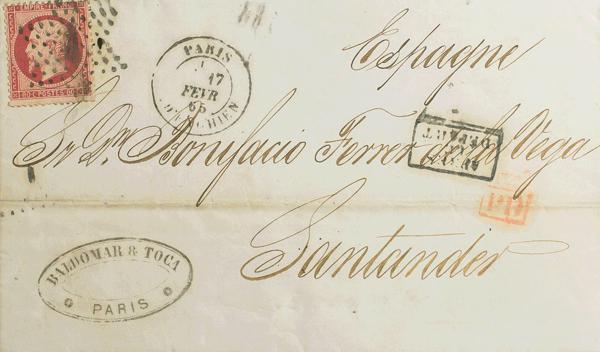 EMPIRE FRANC
80 C POSTES 80 C
PARIS
17
FEVR
65
D'ENGHIEN
Espagne
Sr Dn Bonifacio Ferrer de la Vega
DEPART
PD
Santander
BALDOMAR & TOCA
PARIS